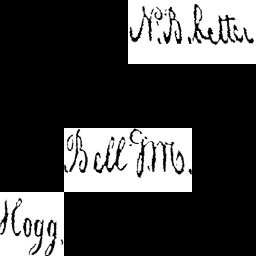 N.B. better
Bell J.M.
Hogg.